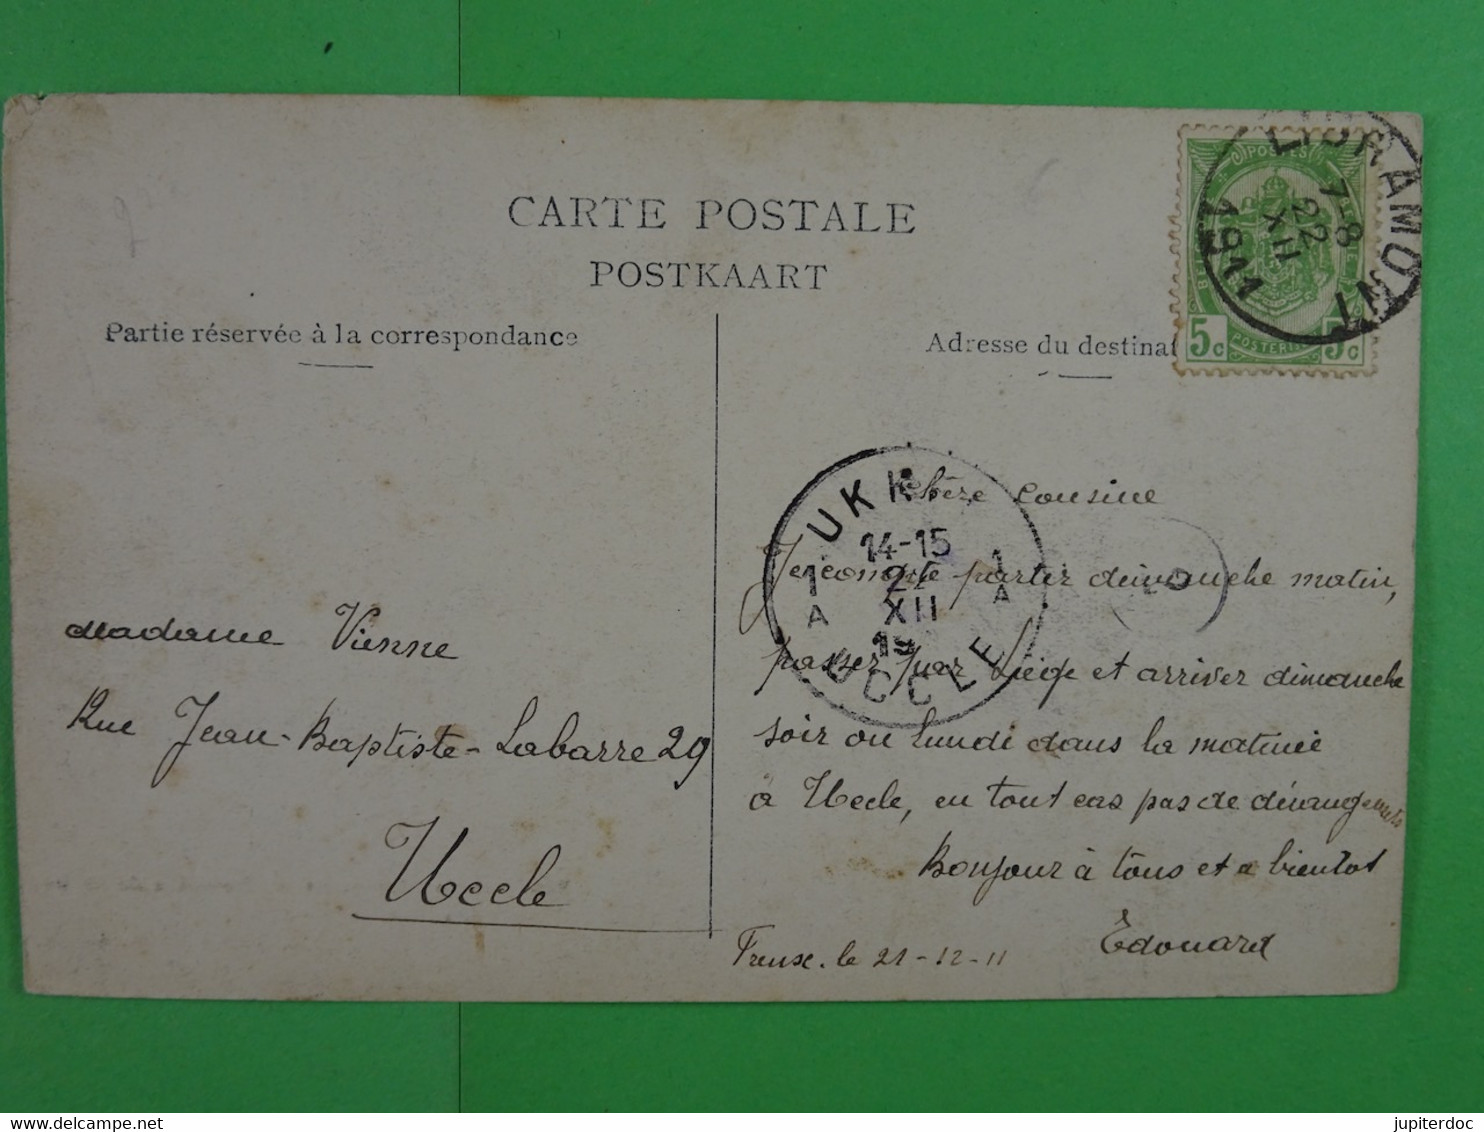 CARTE POSTALE
POSTKAART
Partie réservée à la correspondance
Adresse du destinat
POSTES
5c POSTERIJEN 5c
LIBRAMONT
7-8
22
XII
1911
UKKEL
14-15
1 1
A A
XII
19
UCCLE
Madame Vienne
Rue Jean-Baptiste-Labarre 29
Uccle
chère cousine
Je compte partir dimanche matin,
passer par Liège et arriver dimanche
soir ou lundi dans la matinée
à Uccle, en tout cas pas de dérangements
Bonjour à tous et a bientot
Edouard
Freux. le 21-12-11
www.delcampe.net
jupiterdoc